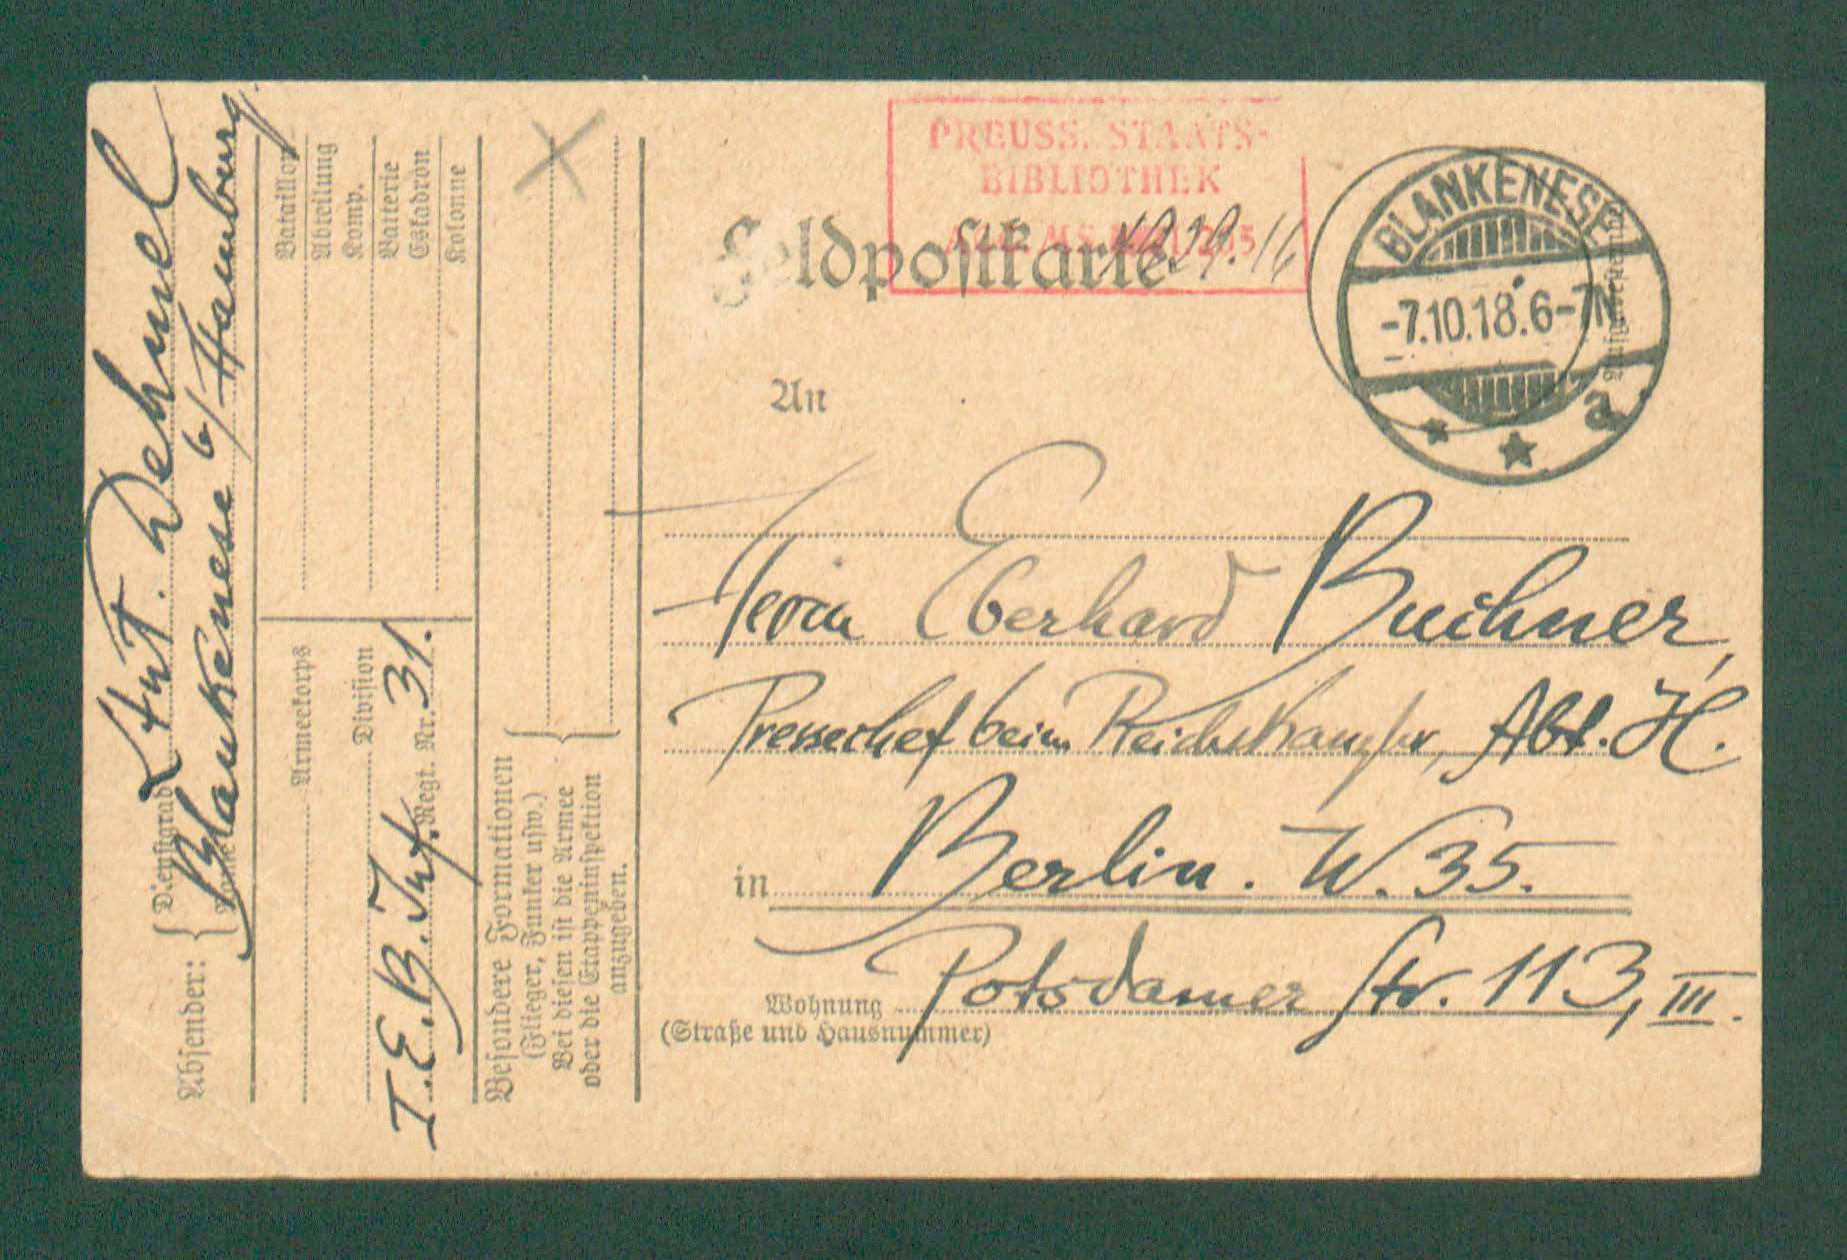 PREUSS. STAATS-
BIBLIOTHEK
Feldpostkarte
BLANKENESE
-7.10.18.6-7N
a
An
Herrn Eberhard Buchner,
Pressechef beim Reichskanzler, Abt. H.
in Berlin. W. 35.
Wohnung Potsdamer Str. 113, III.
(Straße und Hausnummer)
Absender: Dienstgrad Ltnt. Dehmel
Blankenese b/Hamburg.
Bataillon
Abteilung
Komp.
Batterie
Eskadron
Kolonne
Armeekorps
Division
I.E.B. Inf. Regt. Nr. 31.
Besondere Formationen
(Flieger, Funker usw.)
Bei diesen ist die Armee
oder die Etappeninspektion
anzugeben.